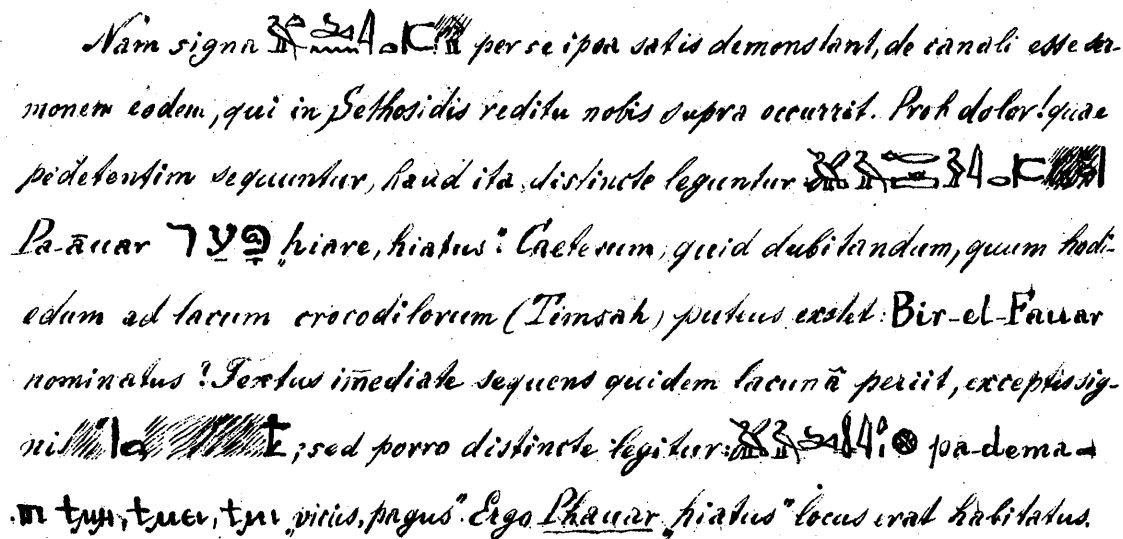 Nam signa per se ipsa satis demonstant, de canali esse ser-
monem eodem, qui in Sethosidis reditu nobis supra occurrit. Proh dolor! quae
pedetentim sequuntur, haud ita distincte leguntur
Pa-āuar פער „hiare, hiatus“. Caeterum, quid dubitandum, quum hodi-
edum ad lacum crocodilorum (Timsah) puteus exstet: Bir-el-Fauar
nominatus? Textus im̄ediate sequens quidem lacunā periit, exceptis sig-
nis ; sed porro distincte legitur: pa-dema
ⲡⲓ ϯⲙⲓ, ϯⲙⲉⲓ, ϯⲙⲓ „vicus, pagus“. Ergo Phauar „hiatus“ locus erat habitatus.